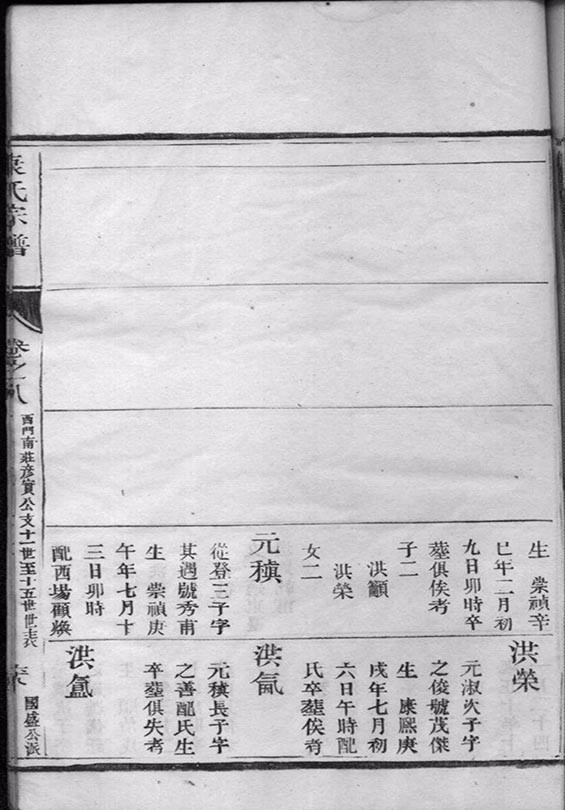 生 崇禎辛
巳年二月初
九日卯時卒
塟俱俟考
子二
洪籲
洪榮
女二
元稹
從登三子字
其遇號秀甫
生 崇禎庚
午年七月十
三日卯時
配西場顧煥
洪榮
元淑次子字
之俊號茂傑
生 康熙庚
戌年七月初
六日午時配
氏卒塟俟考
洪
元稹長子字
之善配氏生
卒塟俱失考
洪
氏宗譜
卷之八
西門南莊彥實公支十一世至十五世世表
國盛公派